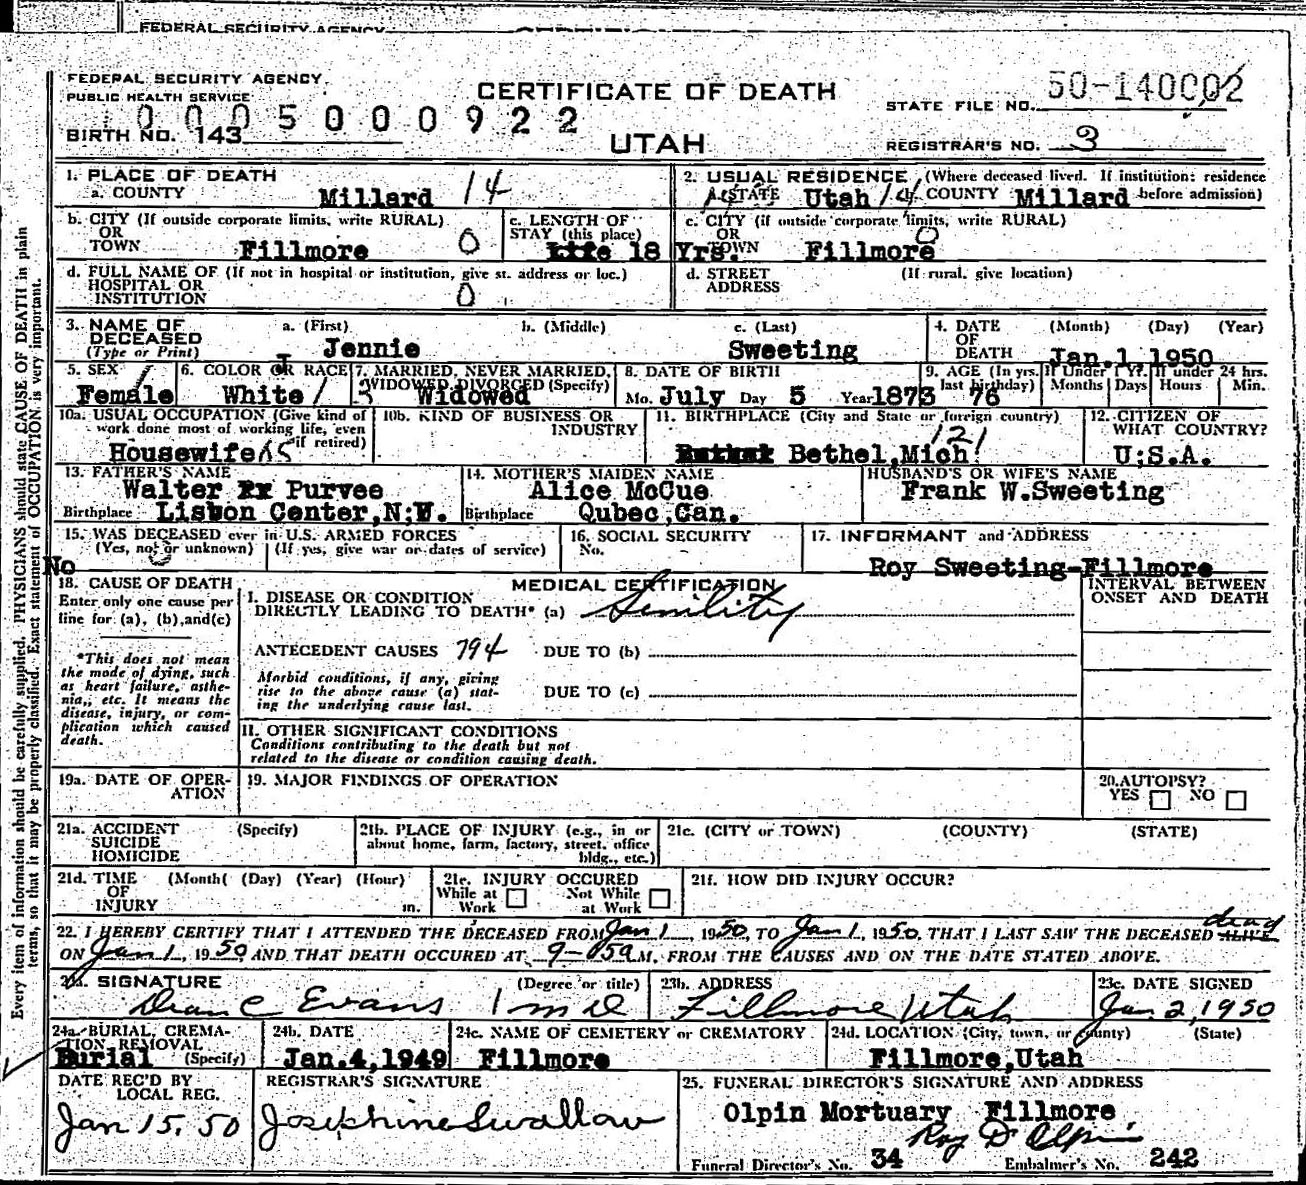 FEDERAL SECURITY AGENCY
FEDERAL SECURITY AGENCY.
PUBLIC HEALTH SERVICE
CERTIFICATE OF DEATH
UTAH
STATE FILE NO. 50-140002
REGISTRAR'S NO. 3
0005000922
BIRTH NO. 143
1. PLACE OF DEATH
a. COUNTY Millard 14
2. USUAL RESIDENCE (Where deceased lived. If institution: residence before admission)
a. STATE Utah 14 c. COUNTY Millard
b. CITY (If outside corporate limits, write RURAL)
OR
TOWN Fillmore 0
c. LENGTH OF
STAY (this place)
Life 18 Yrs.
c. CITY (if outside corporate limits, write RURAL)
OR
TOWN Fillmore 0
d. FULL NAME OF (If not in hospital or institution, give st. address or loc.)
HOSPITAL OR
INSTITUTION 0
d. STREET (If rural, give location)
ADDRESS
3. NAME OF
DECEASED
(Type or Print)
a. (First) b. (Middle) c. (Last)
Jennie Sweeting
4. DATE (Month) (Day) (Year)
OF
DEATH Jan. 1 1950
5. SEX
Female /
6. COLOR OR RACE
White /
7. MARRIED, NEVER MARRIED,
WIDOWED, DIVORCED (Specify)
3 Widowed
8. DATE OF BIRTH
Mo. July Day 5 Year 1873
9. AGE (In yrs. last birthday) 76
If Under 1 Yr. Months Days
If under 24 hrs. Hours Min.
10a. USUAL OCCUPATION (Give kind of
work done most of working life, even
if retired)
Housewife
10b. KIND OF BUSINESS OR
INDUSTRY
11. BIRTHPLACE (City and State or foreign country)
Bethel, Mich. 121
12. CITIZEN OF
WHAT COUNTRY?
U.S.A.
13. FATHER'S NAME
Walter Purvee
Birthplace Lisbon Center, N.Y.
14. MOTHER'S MAIDEN NAME
Alice McCue
Birthplace Qubec, Can.
HUSBAND'S OR WIFE'S NAME
Frank W. Sweeting
15. WAS DECEASED ever in U.S. ARMED FORCES
(Yes, no or unknown) (If yes, give war or dates of service)
No
16. SOCIAL SECURITY
No. -
17. INFORMANT and ADDRESS
Roy Sweeting-Fillmore
18. CAUSE OF DEATH
Enter only one cause per
line for (a), (b), and (c)
*This does not mean
the mode of dying, such
as heart failure, asthe-
nia, etc. It means the
disease, injury, or com-
plication which caused
death.
MEDICAL CERTIFICATION
INTERVAL BETWEEN
ONSET AND DEATH
I. DISEASE OR CONDITION
DIRECTLY LEADING TO DEATH* (a) Senility
ANTECEDENT CAUSES 794 DUE TO (b)
Morbid conditions, if any, giving
rise to the above cause (a) stat-
ing the underlying cause last.
DUE TO (c)
II. OTHER SIGNIFICANT CONDITIONS
Conditions contributing to the death but not
related to the disease or condition causing death.
19a. DATE OF OPER-
ATION
19. MAJOR FINDINGS OF OPERATION
20. AUTOPSY?
YES NO
21a. ACCIDENT (Specify)
SUICIDE
HOMICIDE
21b. PLACE OF INJURY (e.g., in or
about home, farm, factory, street, office
bldg., etc.)
21c. (CITY or TOWN) (COUNTY) (STATE)
21d. TIME (Month( (Day) (Year) (Hour)
OF
INJURY m.
21e. INJURY OCCURED
While at Work Not While at Work
21f. HOW DID INJURY OCCUR?
22. I HEREBY CERTIFY THAT I ATTENDED THE DECEASED FROM Jan 1, 1950, TO Jan 1, 1950, THAT I LAST SAW THE DECEASED ALIVE dead
ON Jan 1, 1950 AND THAT DEATH OCCURED AT 9-05a M, FROM THE CAUSES AND ON THE DATE STATED ABOVE.
23a. SIGNATURE (Degree or title)
Dean C Evans M D
23b. ADDRESS
Fillmore Utah
23c. DATE SIGNED
Jan 2, 1950
24a. BURIAL, CREMA-
TION REMOVAL
Burial (Specify)
24b. DATE
Jan. 4, 1949
24c. NAME OF CEMETERY or CREMATORY
Fillmore
24d. LOCATION (City, town, or county) (State)
Fillmore, Utah
DATE REC'D BY
LOCAL REG.
Jan 15, 50
REGISTRAR'S SIGNATURE
Josephine Swallow
25. FUNERAL DIRECTOR'S SIGNATURE AND ADDRESS
Olpin Mortuary Fillmore
Roy D Olpin
Funeral Director's No. 34 Embalmer's No. 242
Every item of information should be carefully supplied. PHYSICIANS should state CAUSE OF DEATH in plain
terms, so that it may be properly classified. Exact statement of OCCUPATION is very important.